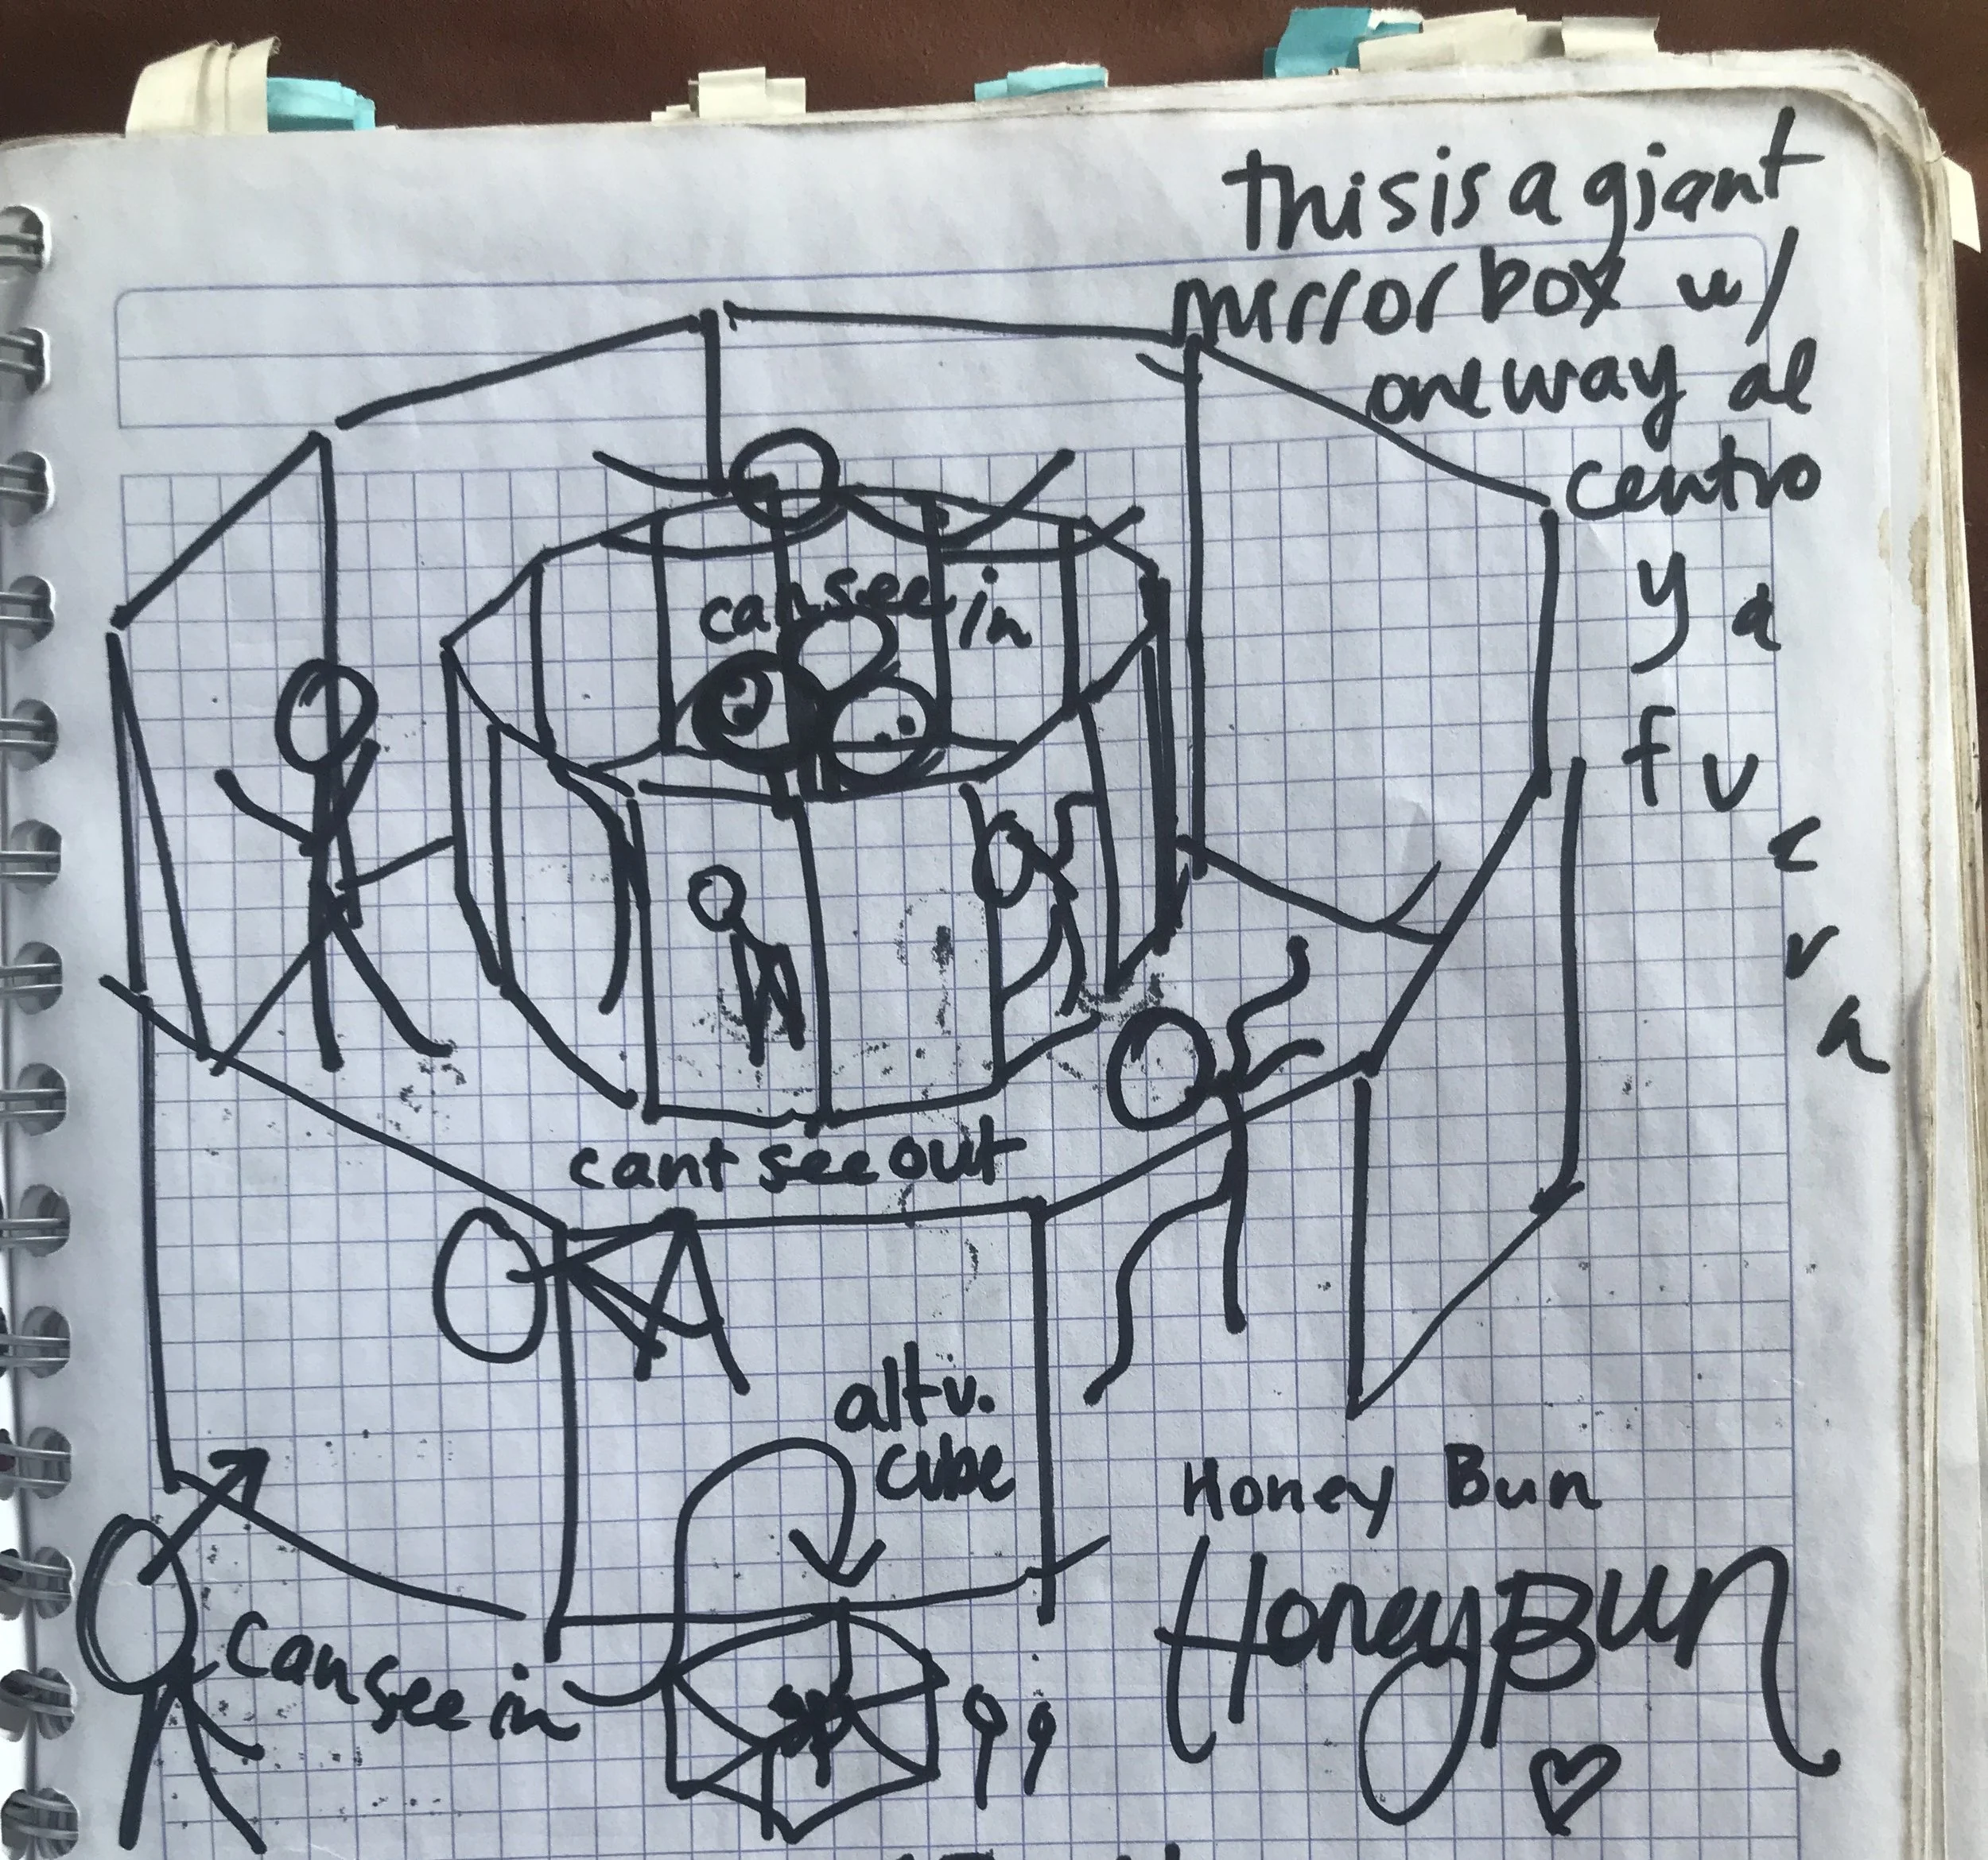 this is a giant
mirror box w/
one way al
centro
y a
fuera
can see in
cant see out
alt v.
cube
Honey Bun
Honey Bun
can see in